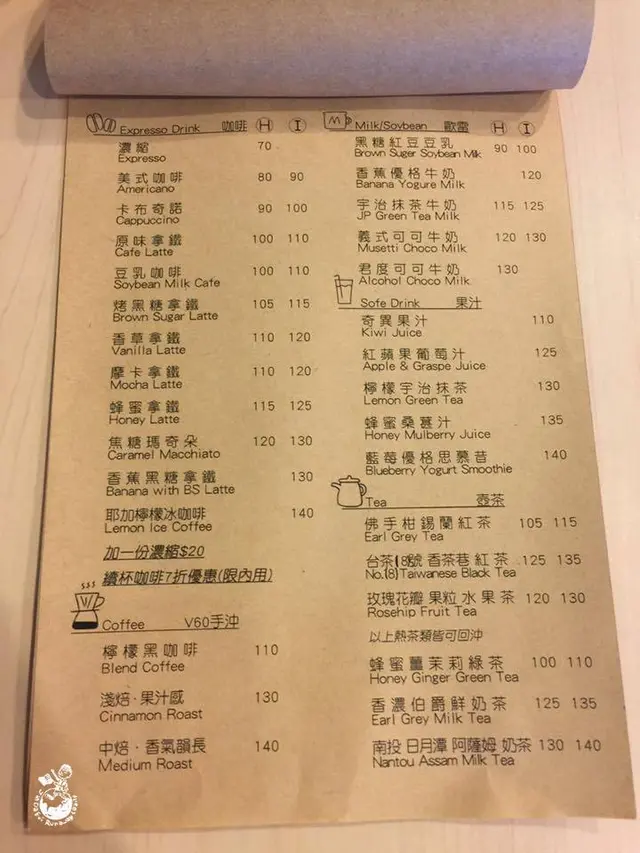 Expresso Drink 咖啡 H I
濃縮 70
Expresso
美式咖啡 80 90
Americano
卡布奇諾 90 100
Cappuccino
原味拿鐵 100 110
Cafe Latte
豆乳咖啡 100 110
Soybean Milk Cafe
烤黑糖拿鐵 105 115
Brown Sugar Latte
香草拿鐵 110 120
Vanilla Latte
摩卡拿鐵 110 120
Mocha Latte
蜂蜜拿鐵 115 125
Honey Latte
焦糖瑪奇朵 120 130
Caramel Macchiato
香蕉黑糖拿鐵 130
Banana with BS Latte
耶加檸檬冰咖啡 140
Lemon Ice Coffee
加一份濃縮$20
續杯咖啡7折優惠(限內用)
Coffee V60手沖
檸檬黑咖啡 110
Blend Coffee
淺焙·果汁感 130
Cinnamon Roast
中焙·香氣韻長 140
Medium Roast
Milk/Soybean 歐蕾 H I
黑糖紅豆豆乳 90 100
Brown Suger Soybean Milk
香蕉優格牛奶 120
Banana Yogure Milk
宇治抹茶牛奶 115 125
JP Green Tea Milk
義式可可牛奶 120 130
Musetti Choco Milk
君度可可牛奶 130
Alcohol Choco Milk
Sofe Drink 果汁
奇異果汁 110
Kiwi Juice
紅蘋果葡萄汁 125
Apple & Graspe Juice
檸檬宇治抹茶 130
Lemon Green Tea
蜂蜜桑葚汁 135
Honey Mulberry Juice
藍莓優格思慕昔 140
Blueberry Yogurt Smoothie
Tea 壺茶
佛手柑錫蘭紅茶 105 115
Earl Grey Tea
台茶18號香茶巷紅茶 125 135
No.18 Taiwanese Black Tea
玫瑰花瓣果粒水果茶 120 130
Rosehip Fruit Tea
以上熱茶類皆可回沖
蜂蜜薑茉莉綠茶 100 110
Honey Ginger Green Tea
香濃伯爵鮮奶茶 125 135
Earl Grey Milk Tea
南投日月潭阿薩姆奶茶 130 140
Nantou Assam Milk Tea